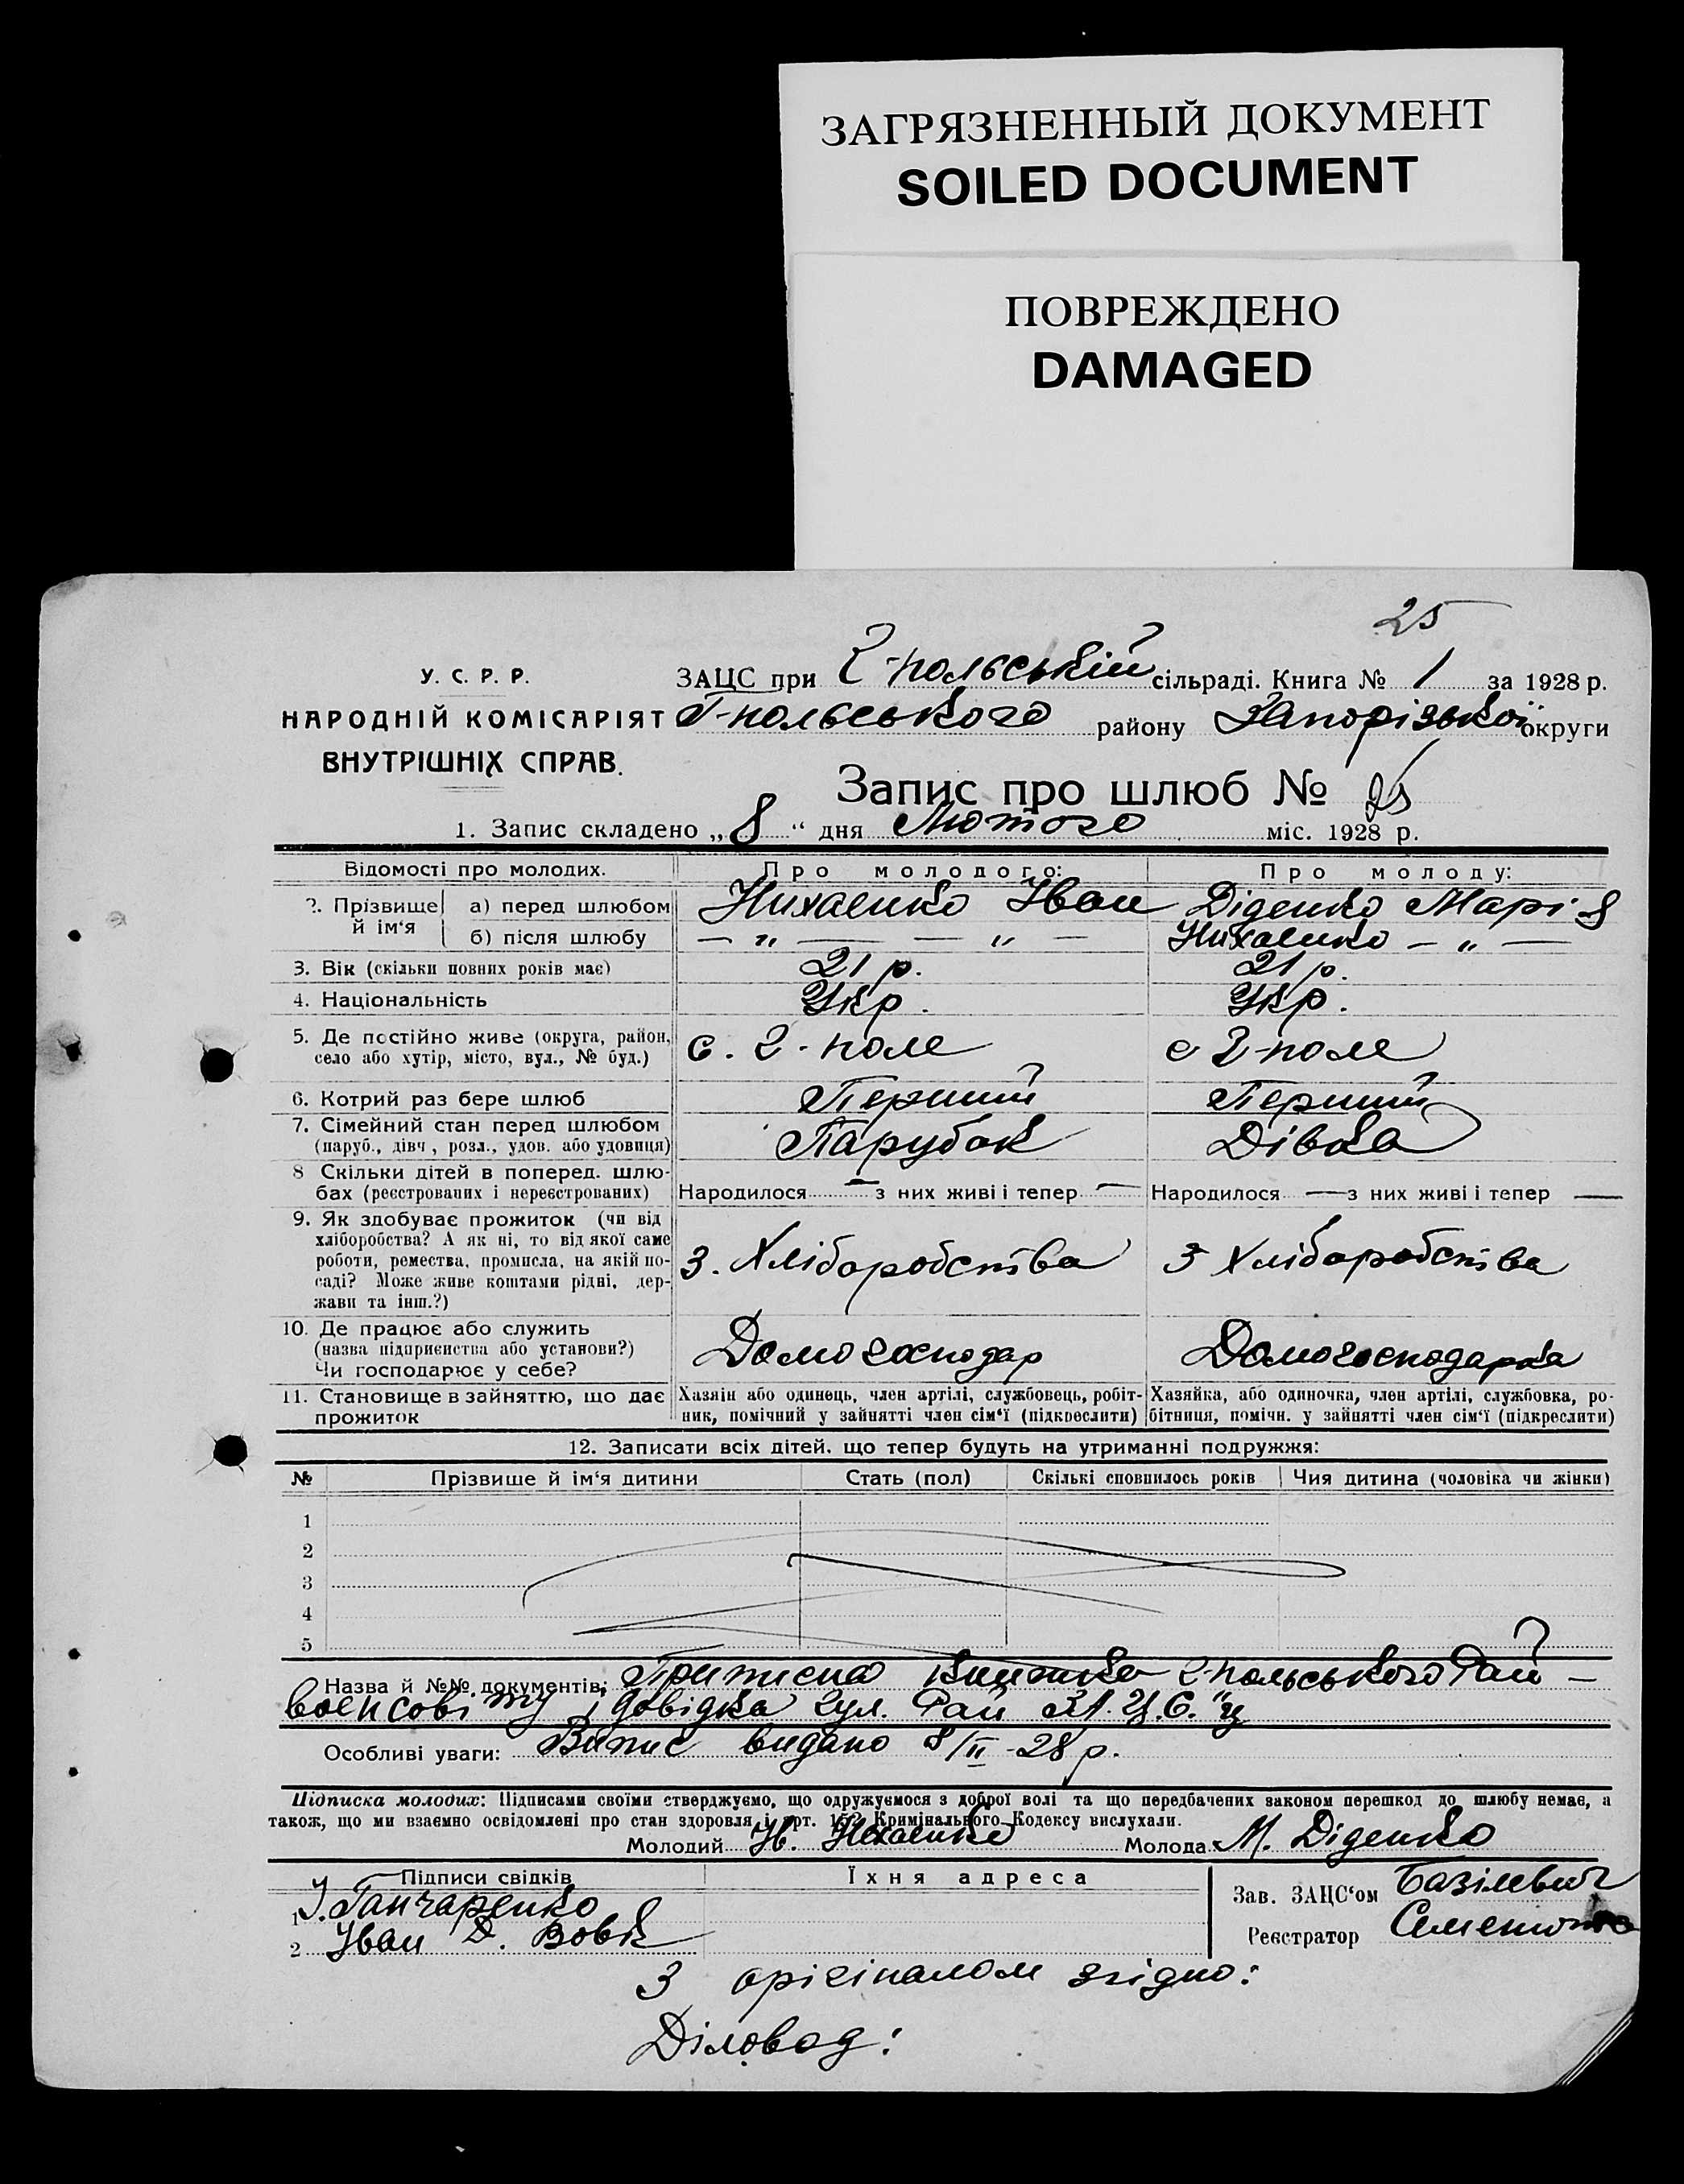 ЗАГРЯЗНЕННЫЙ ДОКУМЕНТ
SOILED DOCUMENT
ПОВРЕЖДЕНО
DAMAGED
25
У. С. Р. Р.
НАРОДНІЙ КОМІСАРІЯТ
ВНУТРІШНІХ СПРАВ.
ЗАЦС при Г-польській сільраді. Книга № 1 за 1928 р.
Г-польського району Запорізької округи
Запис про шлюб № 25
1. Запис складено „ 8 “ дня Лютого міс. 1928 р.
Відомості про молодих. Про молодого: Про молоду:
2. Прізвище й ім‘я а) перед шлюбом Нихаенко Іван Діденко Марія
б) після шлюбу — „ — — „ — Нихаенко — „ —
3. Вік (скільки повних років має) 21 р. 21 р.
4. Національність Укр. Укр.
5. Де постійно живе (округа, район, село або хутір, місто, вул., № буд.) с. Г-поле с Г-поле
6. Котрий раз бере шлюб Перший Перший
7. Сімейний стан перед шлюбом (паруб., дівч, розл., удов. або удовиця) Парубок Дівка
8 Скільки дітей в поперед. шлюбах (реєстрованих і нереєстрованих) Народилося — з них живі і тепер — Народилося — з них живі і тепер —
9. Як здобуває прожиток (чи від хліборобства? А як ні, то від якої саме роботи, ремества, промисла, на якій посаді? Може живе коштами рідні, держави та інш.?) З. Хліборобства З Хліборобства
10. Де працює або служить (назва підприємства або установи?) Чи господарює у себе? Домогосподар Домогосподарка
11. Становище в зайняттю, що дає прожиток Хазяїн або одинець, член артілі, службовець, робітник, помічний у зайнятті член сім‘ї (підкреслити) Хазяйка, або одиночка, член артілі, службовка, робітниця, помічн. у зайнятті член сім‘ї (підкреслити)
12. Записати всіх дітей, що тепер будуть на утриманні подружжя:
№ Прізвище й ім‘я дитини Стать (пол) Скількі сповнилось років Чия дитина (чоловіка чи жінки)
1
2
3
4
5
Назва й №№ документів: Приписна книжка Г-польського Рай-
военсовіту і довідка Гул. Рай
Особливі уваги: Випис видано 8/II-28 р.
Підписка молодих: Підписами своїми стверджуємо, що одружуємося з доброї волі та що передбачених законом перешкод до шлюбу немає, а
також, що ми взаємно освідомлені про стан здоровля і арт. 152 Кримінального Кодексу вислухали.
Молодий Ів. Нехаенко Молода М. Діденко
Підписи свідків Їхня адреса Зав. ЗАЦС‘ом Базілевич
1 І. Ганчаренко
2 Іван Д. Вовк Реєстратор
З орігіналом згідно:
Діловод: